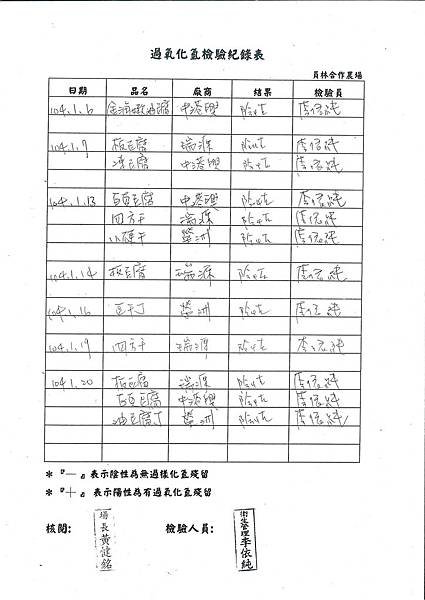 過氧化氫檢驗紀錄表
員林合作農場
日期 品名 廠商 結果 檢驗員
104.1.6 中港興 陰性 李依純
104.1.7 板豆腐 瑞源 陰性 李依純
凍豆腐 中港興 陰性 李依純
104.1.13 百頁豆腐 中港興 陰性 李依純
四方干 瑞源 陰性 李依純
小硬干 榮洲 陰性 李依純
104.1.14 板豆腐 瑞源 陰性 李依純
104.1.16 豆干丁 榮洲 陰性 李依純
104.1.19 四方干 瑞源 陰性 李依純
104.1.20 板豆腐 瑞源 陰性 李依純
百頁豆腐 中港興 陰性 李依純
油豆腐丁 榮洲 陰性 李依純
* 『一』表示陰性為無過樣化氫殘留
* 『十』表示陽性為有過氧化氫殘留
核閱: 場長黃健銘 檢驗人員: 衛生管理李依純